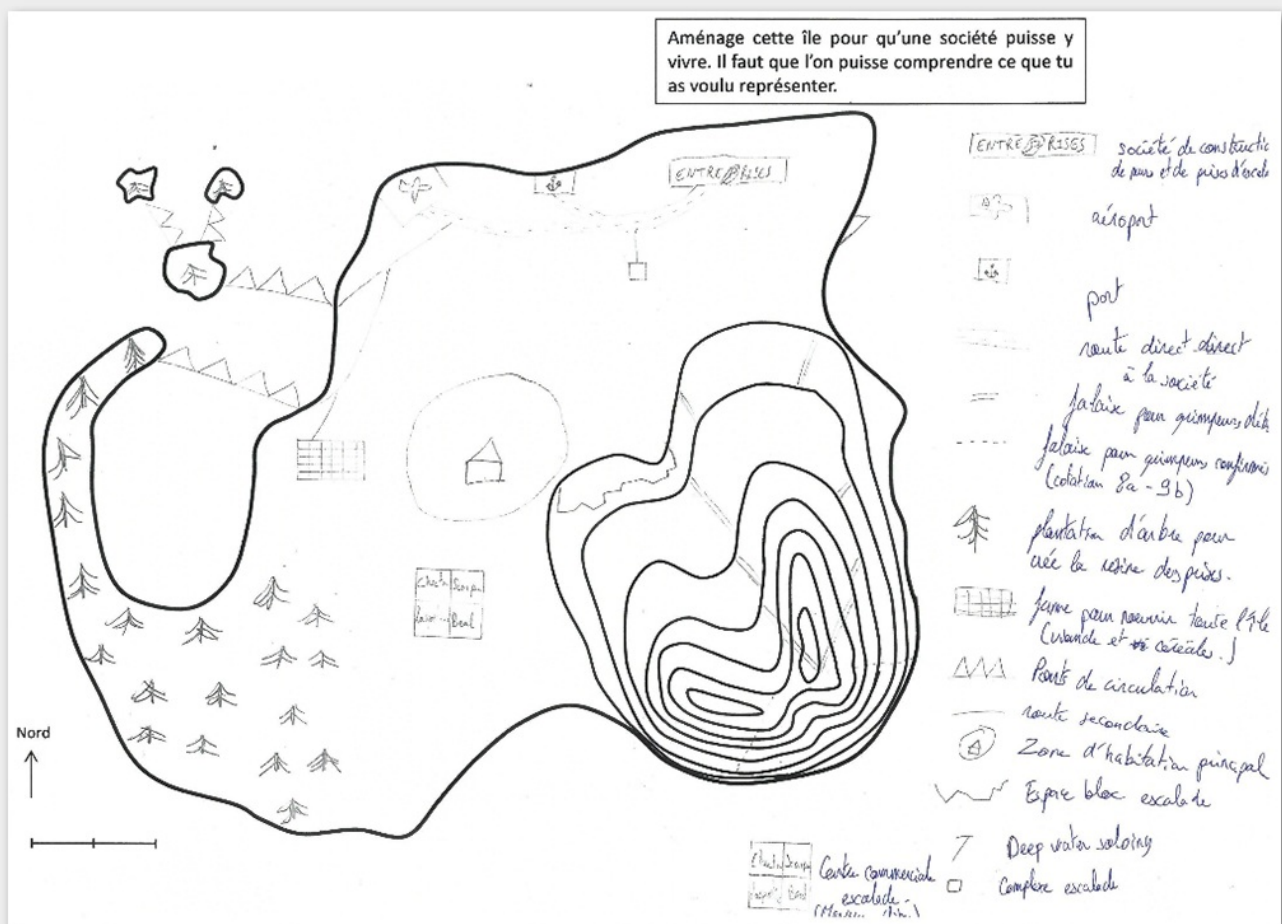 Aménage cette île pour qu'une société puisse y
vivre. Il faut que l'on puisse comprendre ce que tu
as voulu représenter.
ENTRE PRISES
ENTRE PRISES
société de constructio
de murs et de prises d'escala
aéroport
port
route direct direct
à la société
falaise pour grimpeurs déb
falaise pour grimpeurs confirmés
(cotation 8a - 9b)
plantation d'arbre pour
crée la résine des prises.
farme pour nourrir toute l'île
(viande et céréales.)
Ponts de circulation
route secondaire
Zone d'habitation principal
Espace bloc escalade
Deep water soloing
Complexe escalade
Scarpa
Beal
Nord
Scarpa
Beal
Centre commerciale
escalade.